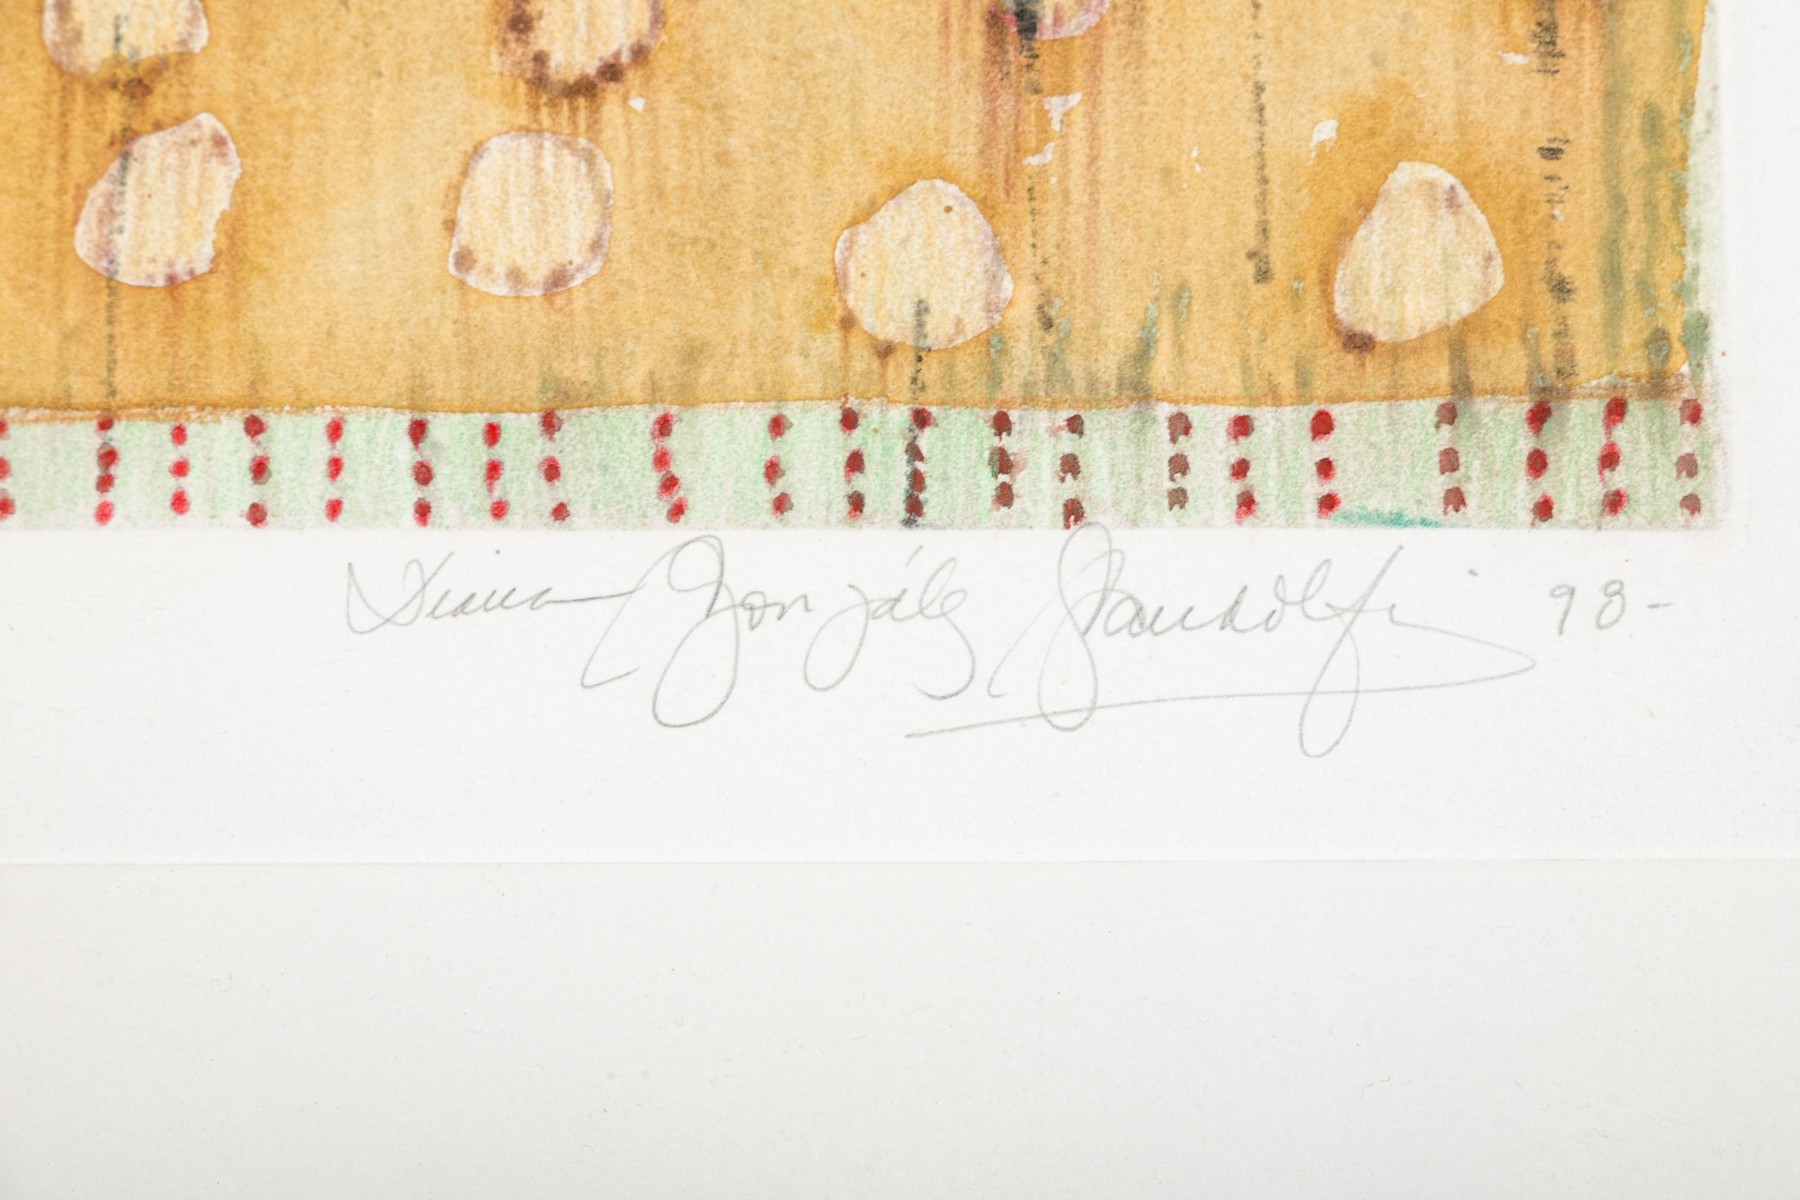 Diana González Gandolfi 98-